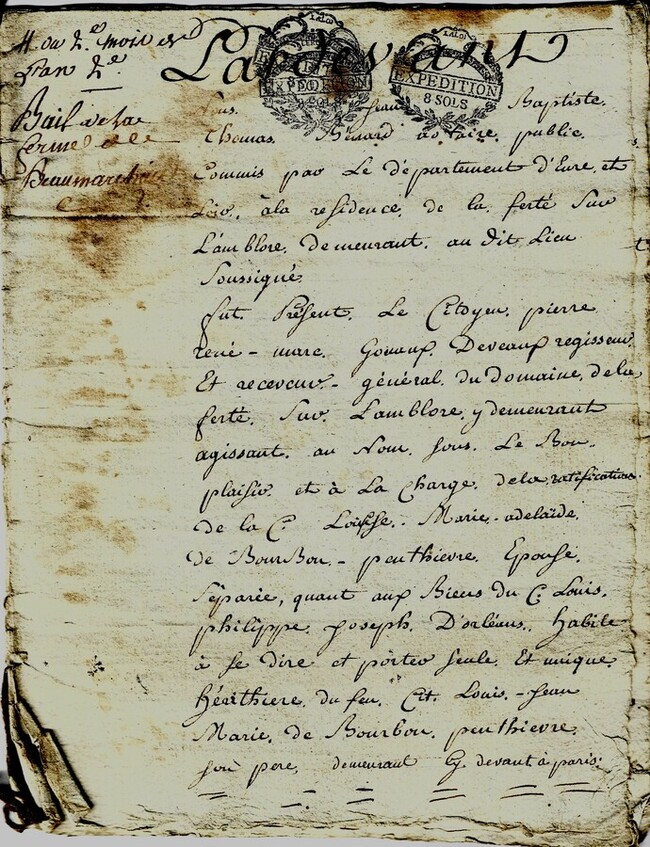 11 du 2.e mois de
L'an 2.e
Bail de la
ferme de
Beaumarchais
Pardevant
EXPEDITION
8 SOLS
EXPEDITION
8 SOLS
Nous. Jean Baptiste.
Thomas. Bénard notaire, public
Commis par Le département d'Eure, et
Loir, à la residence, de la ferté Sur
L'amblore, demeurant, au dit Lieu
Soussigné
fut Présent. Le Citoyen, pierre
rené - marc, Deveaux regisseur
Et receveur - général, du Domaine, de la
ferté, Sur, L'amblore, y demeurant
agissant, au Nom, sous, Le Bon
plaisir, et à La Charge, de la ratification
de la C. Louise, Marie, adelaïde,
de Bourbon - penthievre, Epouse,
Séparée, quant aux Biens du C. Louis,
philippe, joseph, D'orléans, habile
à se dire et porter seule, Et unique
hérithiere, du feu, Cit. Louis, - jean
Marie, de Bourbon, penthievre,
son pere, demeurant Cy devant à paris;